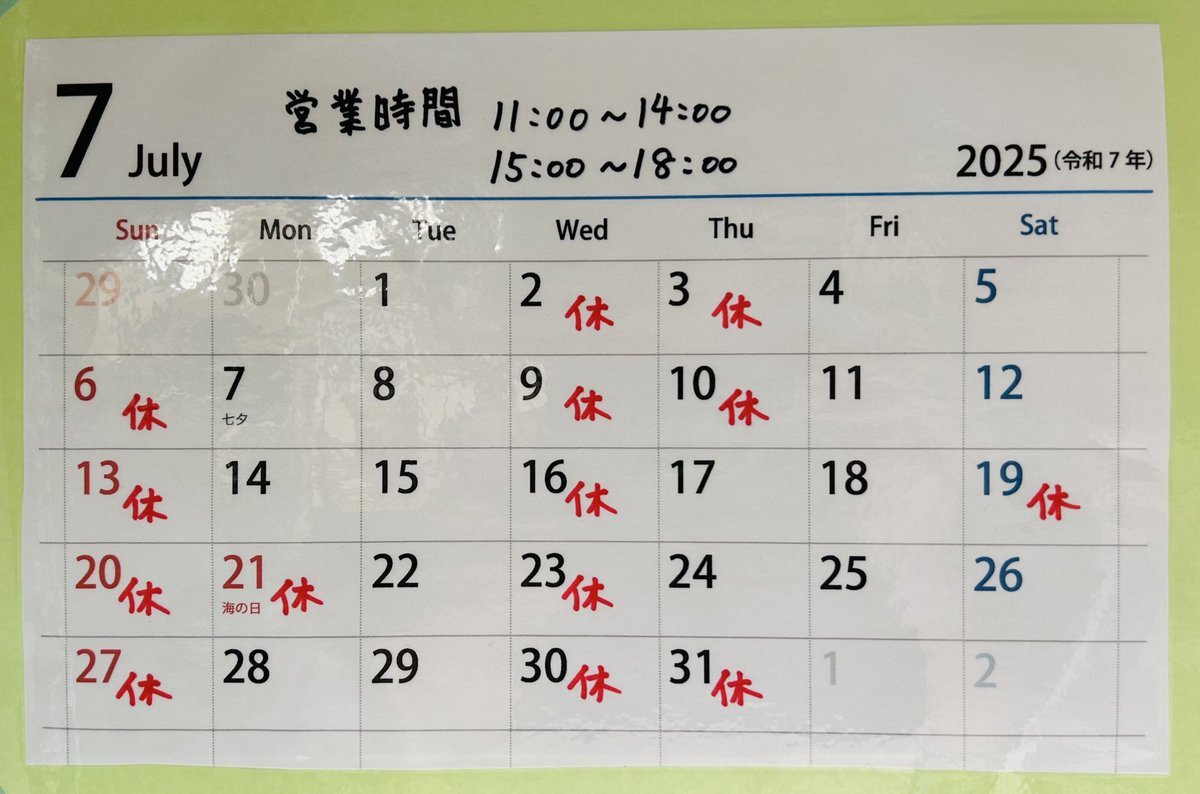 7 July 営業時間 11:00~14:00
15:00~18:00
2025(令和7年)
Sun Mon Tue Wed Thu Fri Sat
29 30 1 2 休 3 休 4 5
6 休 7 8 9 休 10 休 11 12
七夕
13 休 14 15 16 休 17 18 19 休
20 休 21 休 22 23 休 24 25 26
海の日
27 休 28 29 30 休 31 休 1 2